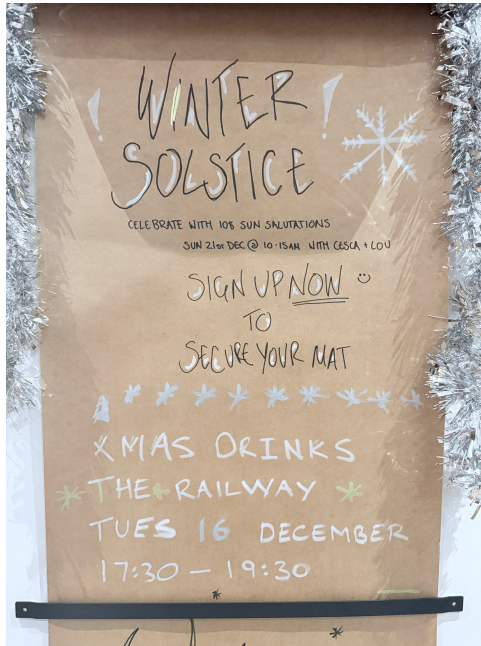 ! WINTER !
SOLSTICE
CELEBRATE WITH 108 SUN SALUTATIONS
SUN 21ST DEC @ 10.15AM WITH CESCA + LOU
SIGN UP NOW
TO
SECURE YOUR MAT
XMAS DRINKS
THE RAILWAY
TUES 16 DECEMBER
17:30 – 19:30